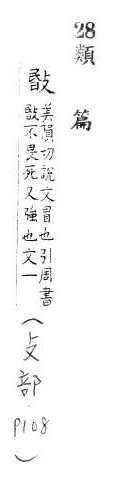 28類篇
敯 美隕切說文冒也引周書
敯不畏死又強也文一
（攴部．P108）